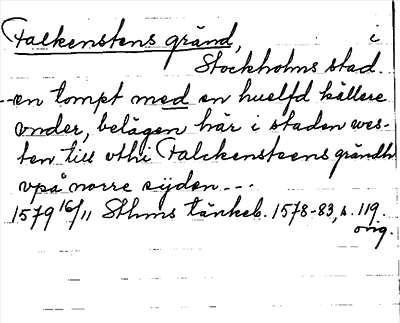 Falkenstens gränd, i
Stockholms stad.
--en tompt med en huelfd källere
vnder, belägen här i staden wes-
ten till vthi Falckensteens grändh
vpå norre sijden ---
1579 16/11 Sthms tänkeb. 1578-83, s. 119.
orig.